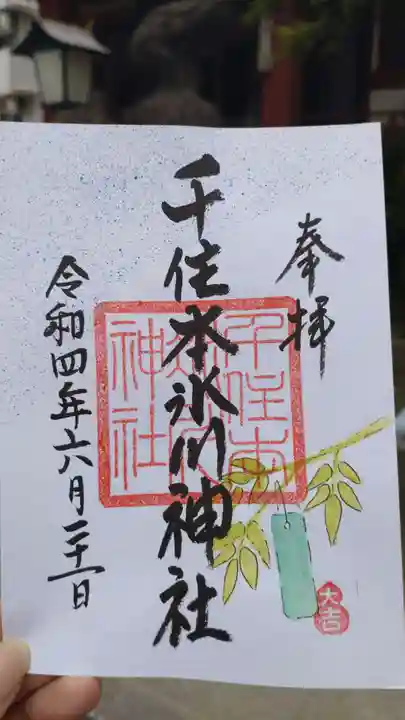 奉拝
千住本氷川神社
千住本
氷川
神社
令和四年六月二十一日
大吉